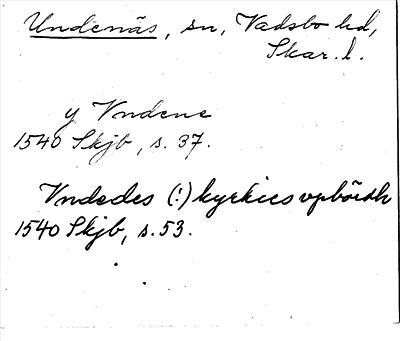 Undenäs, sn, Vadsbo hd,
Skar. l.
y Vndene
1540 Skjb, s. 37.
Vndedes (:) kyrkies vpbördh
1540 Skjb, s. 53.